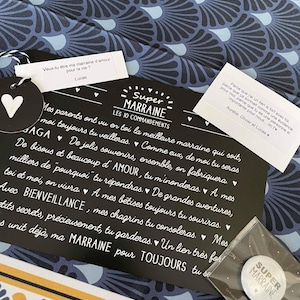 Veux-tu être ma marraine d'amour
pour la vie ?
Lucas
Super
MARRAINE
LES 10 COMMANDEMENTS
Mes parents ont vu en toi la meilleure marraine qui soit,
moi toujours tu veilleras. Comme eux, de moi tu seras
GAGA De jolis souvenirs, ensemble, on fabriquera
De bisous et beaucoup d'AMOUR, tu m'inonderas A mes
milliers de pourquoi tu répondras De grandes aventures,
toi et moi, on vivra A mes bêtises toujours tu souriras.
Avec BIENVEILLANCE, mes chagrins tu consoleras Mes
petits secrets précieusement tu garderas Un lien très fo
s unit déjà ma MARRAINE pour TOUJOURS tu
SUPER
MARRAINE